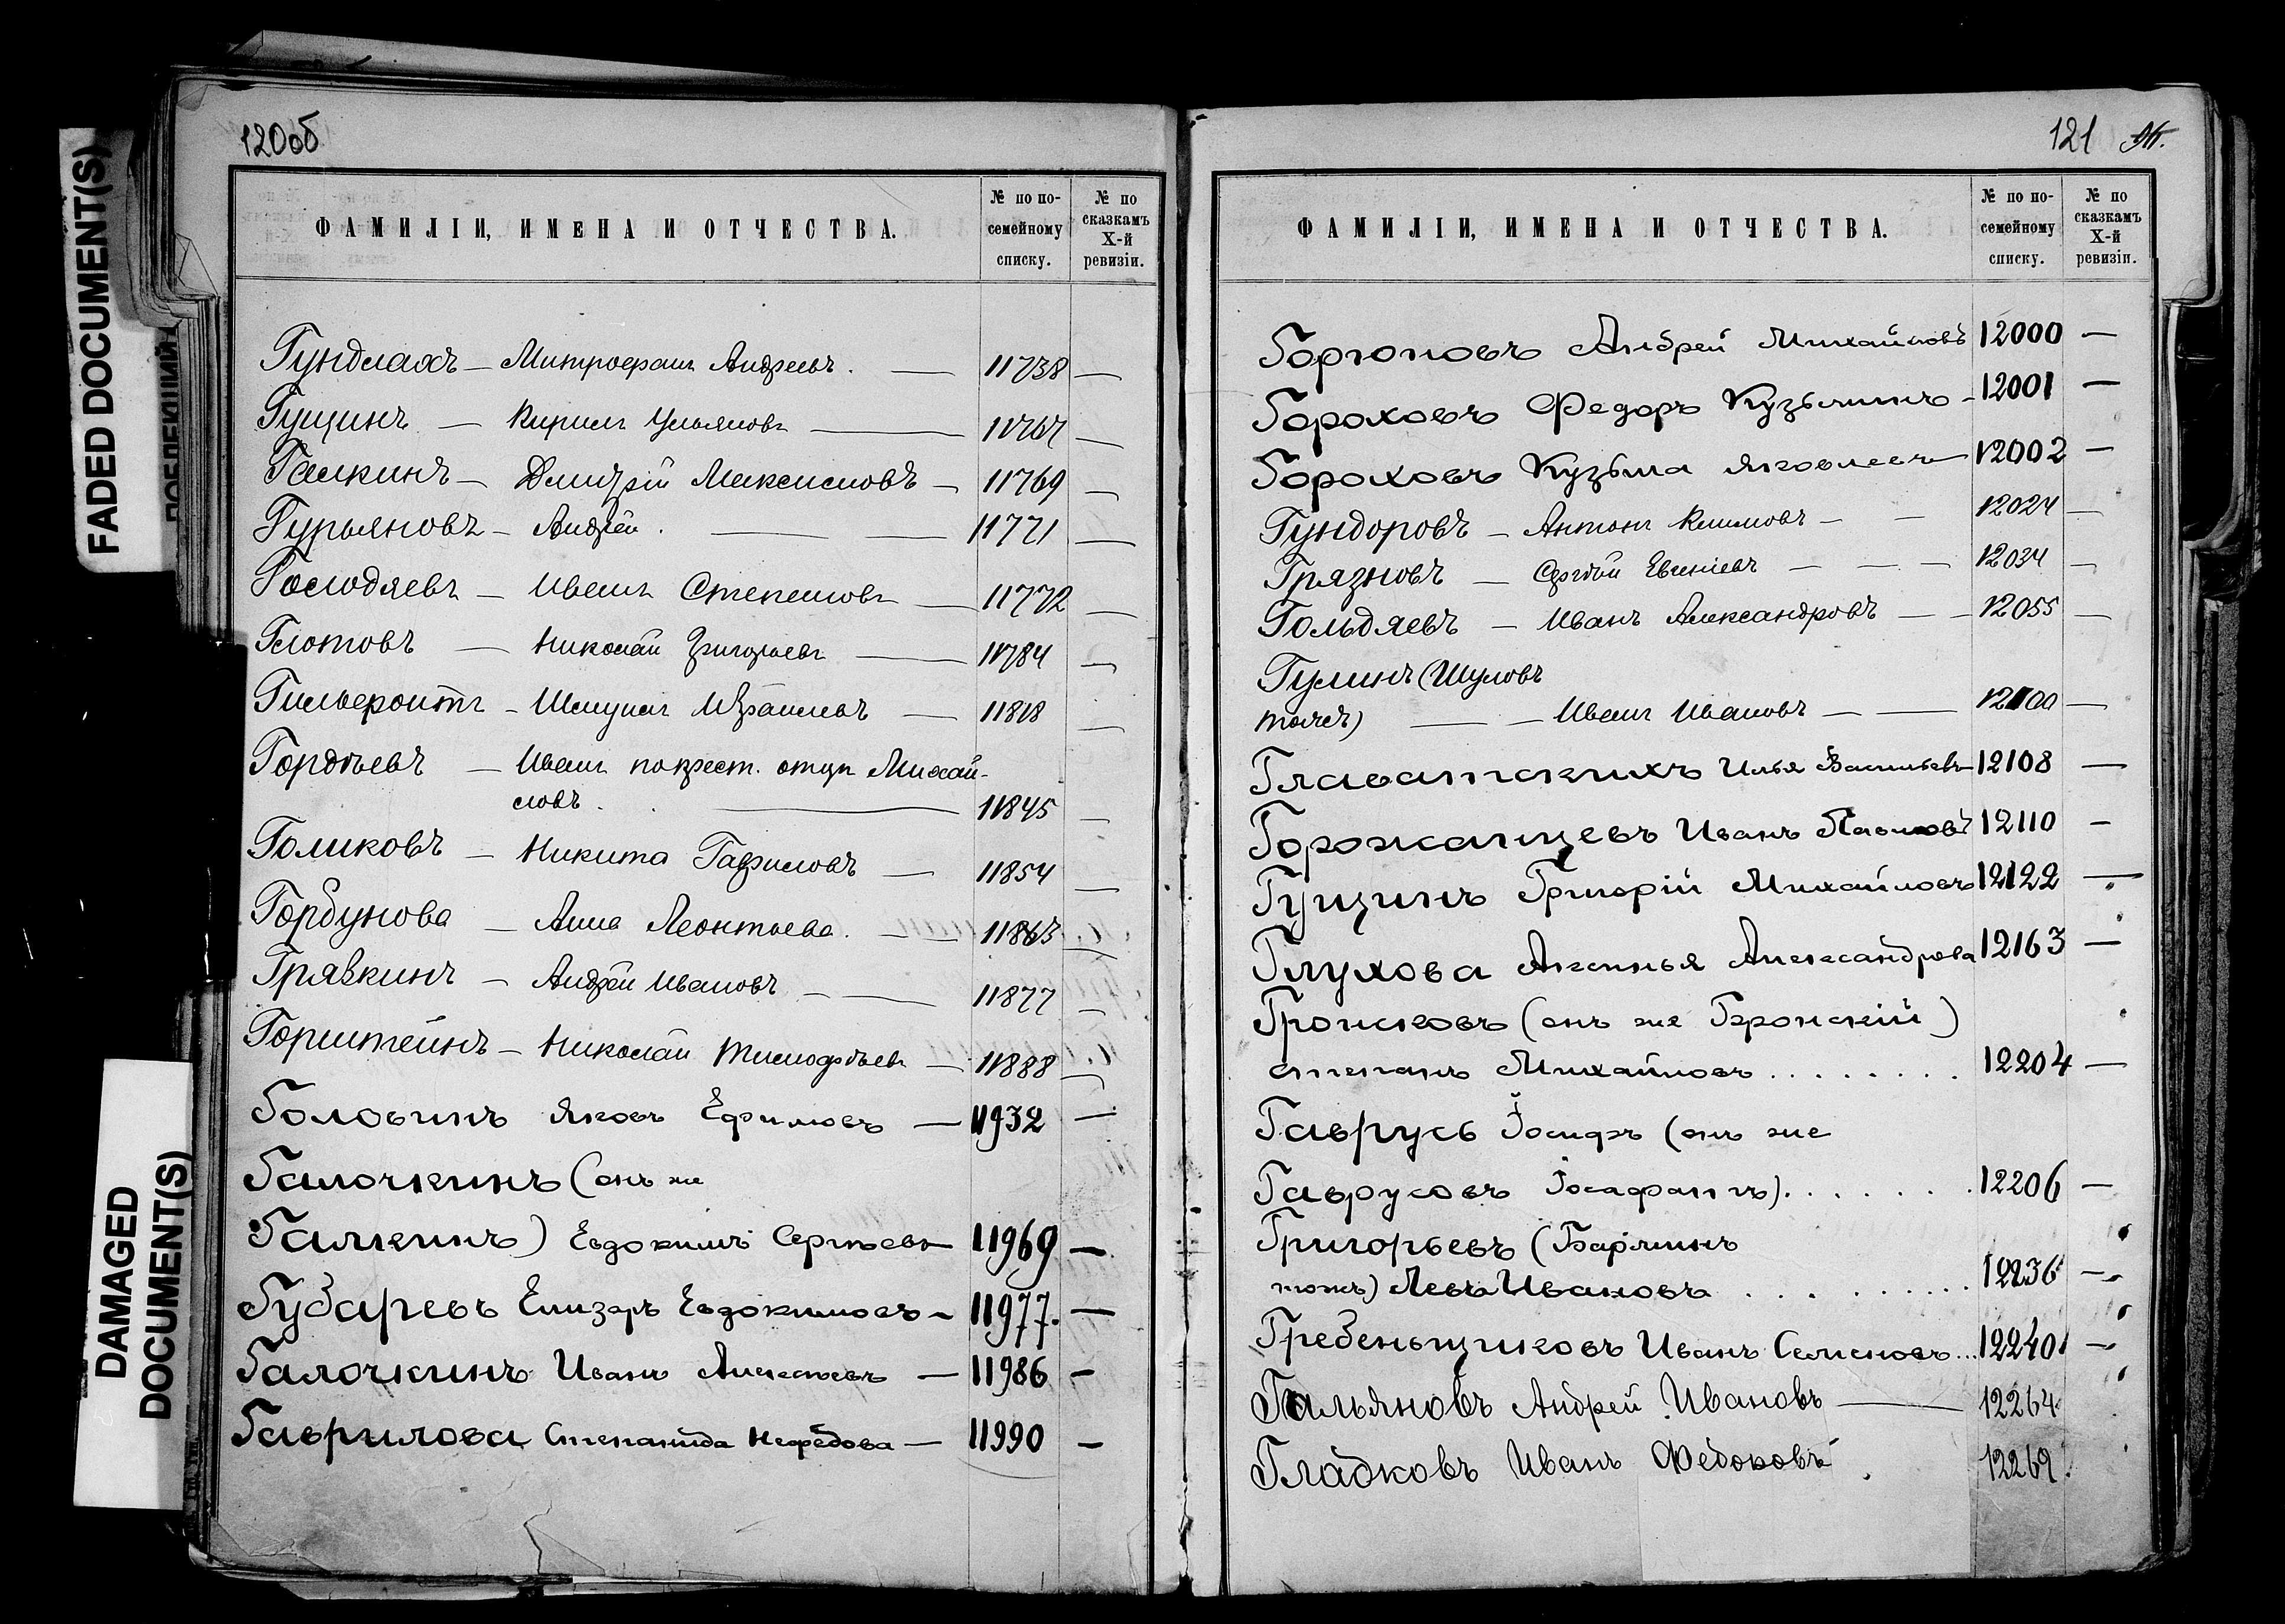 FADED DOCUMENT(S)
DAMAGED
DOCUMENT(S)
120об
ФАМИЛІИ, ИМЕНА И ОТЧЕСТВА.
№ по по-
семейному
списку.
№ по
сказкамъ
X-й
ревизіи.
Гундлахъ — Митрофанъ Андреевъ. — 11738 —
Гущинъ — Кирилъ Ульяновъ — 11767 —
Галкинъ — Дмитрій Максимовъ — 11769 —
Гурьяновъ — Андрей. — — 11771 —
Гослодяевъ — Иванъ Степановъ — 11772 —
Глотовъ — Николай Григорьевъ — 11784 —
Шмуилъ Израилевъ — 11818 —
Гордѣевъ — Иванъ по крест. отцу Михай-
ловъ. — 11845 —
Голиковъ — Никита Гавриловъ — 11854 —
Горбунова — Анна Леонтьева. — — 11863 —
Грявкинъ — Андрей Ивановъ — — 11877 —
Горштейнъ — Николай Тимофѣевъ — 11888 —
Головинъ Яковъ Ефимовъ — 11932 —
Галочкинъ (онъ же
Галкинъ) Евдокимъ Сергѣевъ 11969 —
Губаревъ Елизаръ Евдокимовъ — 11977. —
Галочкинъ Иванъ Алексѣевъ — 11986 —
Гаврилова Степанида Нефедова — 11990 —
121
ФАМИЛІИ, ИМЕНА И ОТЧЕСТВА.
№ по по-
семейному
списку.
№ по
сказкамъ
X-й
ревизіи.
Горюновъ Андрей Михайловъ 12000 —
Гороховъ Федоръ Кузьминъ — 12001 —
Гороховъ Кузьма Яковлевъ 12002 —
Гундоровъ — Антонъ Климовъ — — 12024 —
Грязновъ — Сергѣй Евгеніевъ — — — 12034 —
Гольдяевъ — Иванъ Александровъ — — 12055 —
Гулинъ (Шуловъ
тожъ) — — Иванъ Ивановъ — — 12100 —
Главатскихъ Илья Васильевъ 12108 —
Горожанцевъ Иванъ Павловъ 12110 —
Гущинъ Григорій Михайловъ 12122 —
Глухова Аксинья Александрова 12163 —
Гронсковъ (онъ же Гронскій)
степанъ Михайловъ ........ 12204 —
Гаврусь Іосифъ (онъ же
Гаврусовъ Іосафатъ) ....... 12206 —
Григорьевъ (Барминъ
тожъ) Левъ Ивановъ ........ 12236 —
Гребеньщиковъ Иванъ Семеновъ... 12240 —
Гальяновъ Андрей Ивановъ — 12264
Гладковъ Иванъ Федоровъ. 12269